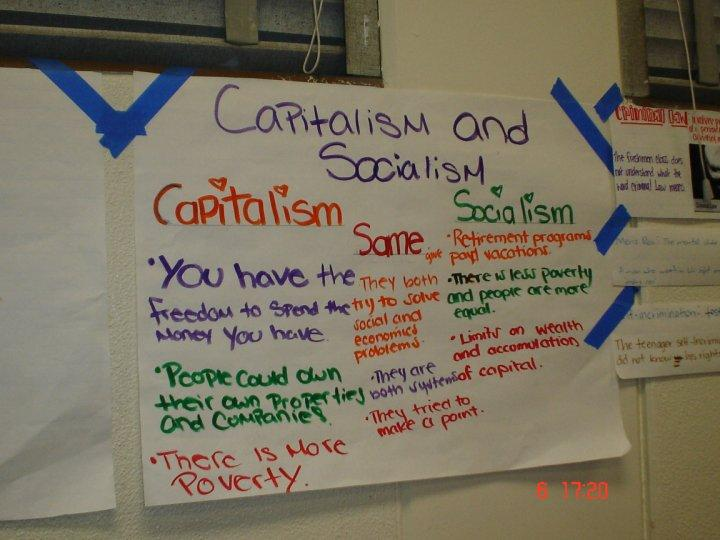 Capitalism and
Socialism
Capitalism
•You have the
freedom to spend the
money you have.
•People could own
their own properties
and companies.
•There is more
Poverty.
Same
They both
try to solve
social and
economics
problems.
•They are
both systems
•They tried to
make a point.
Socialism
•Retirement programs
give paid vacations.
•There is less poverty
and people are more
equal.
•Limits on wealth
and accomulation
of capital.
Criminal Law
The freshmen class does
not understand what the
word criminal Law means.
Mens Rea: The mental
The teenager self-
did not know his right
6 17:20